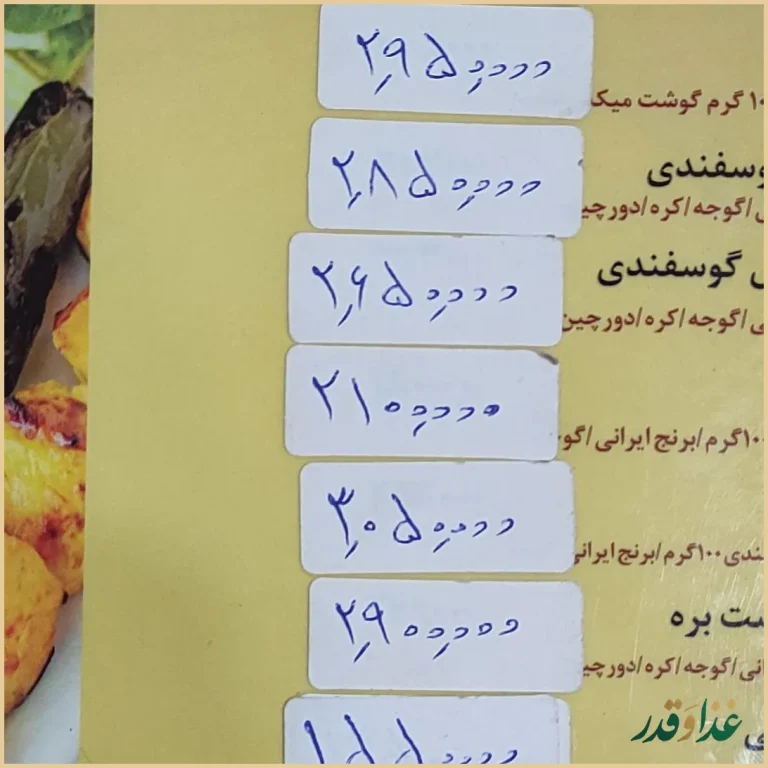 ۲,۹۵۰,۰۰۰
۱۰۰ گرم گوشت
۲,۸۵۰,۰۰۰
گوسفندی
/گوجه/کره/
۲,۶۵۰,۰۰۰
گوسفندی
/گوجه/کره/دورچین
۲۱۰۰,۰۰۰
۱۰۰گرم/برنج ایرانی/
۳,۰۵۰,۰۰۰
۱۰۰گرم/برنج
۲,۹۰۰,۰۰۰
بره
/گوجه/کره/
غذا و قدر